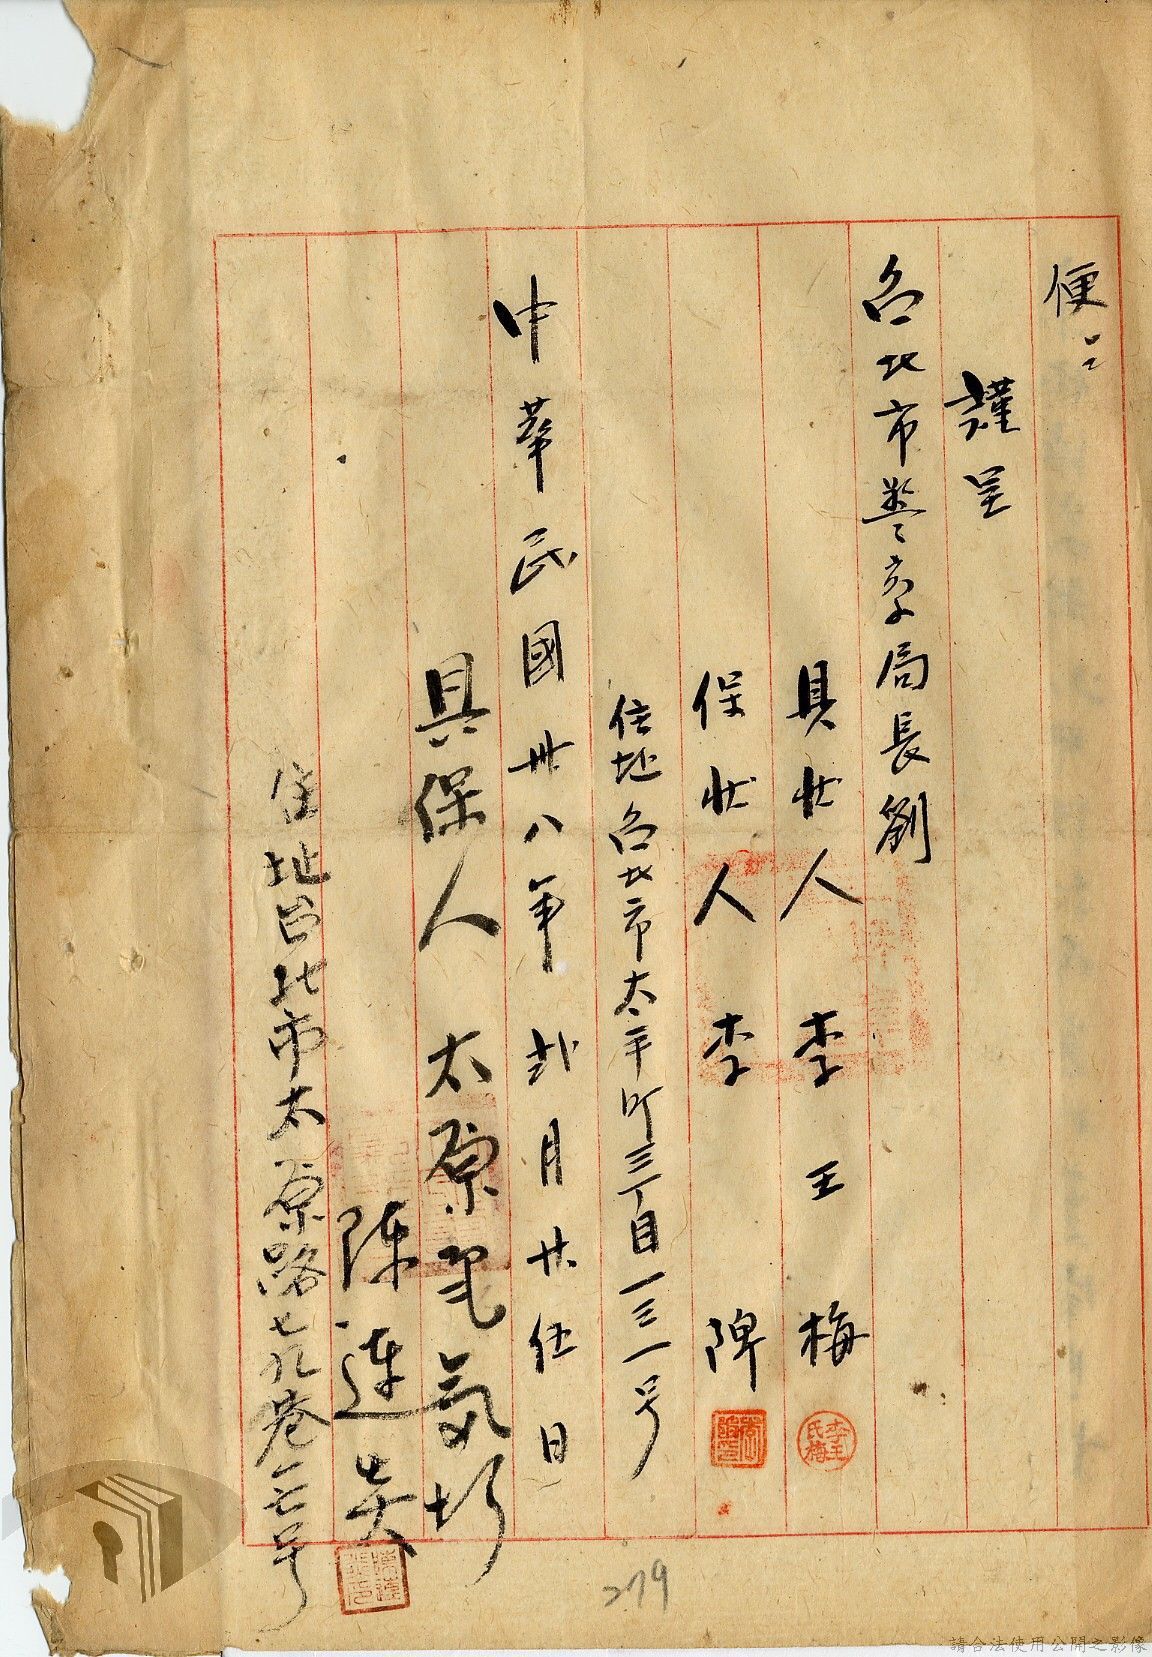 便
謹呈
台北市警察局長劉
具狀人李王梅
李王氏梅
保狀人李陴
住址台北市太平町三丁目一三一号
中華民國卅八年弍月廿伍日
具保人 太原電氣行
陳連英
住址台北市太原路七九巷三七号
279
請合法使用公開之影像